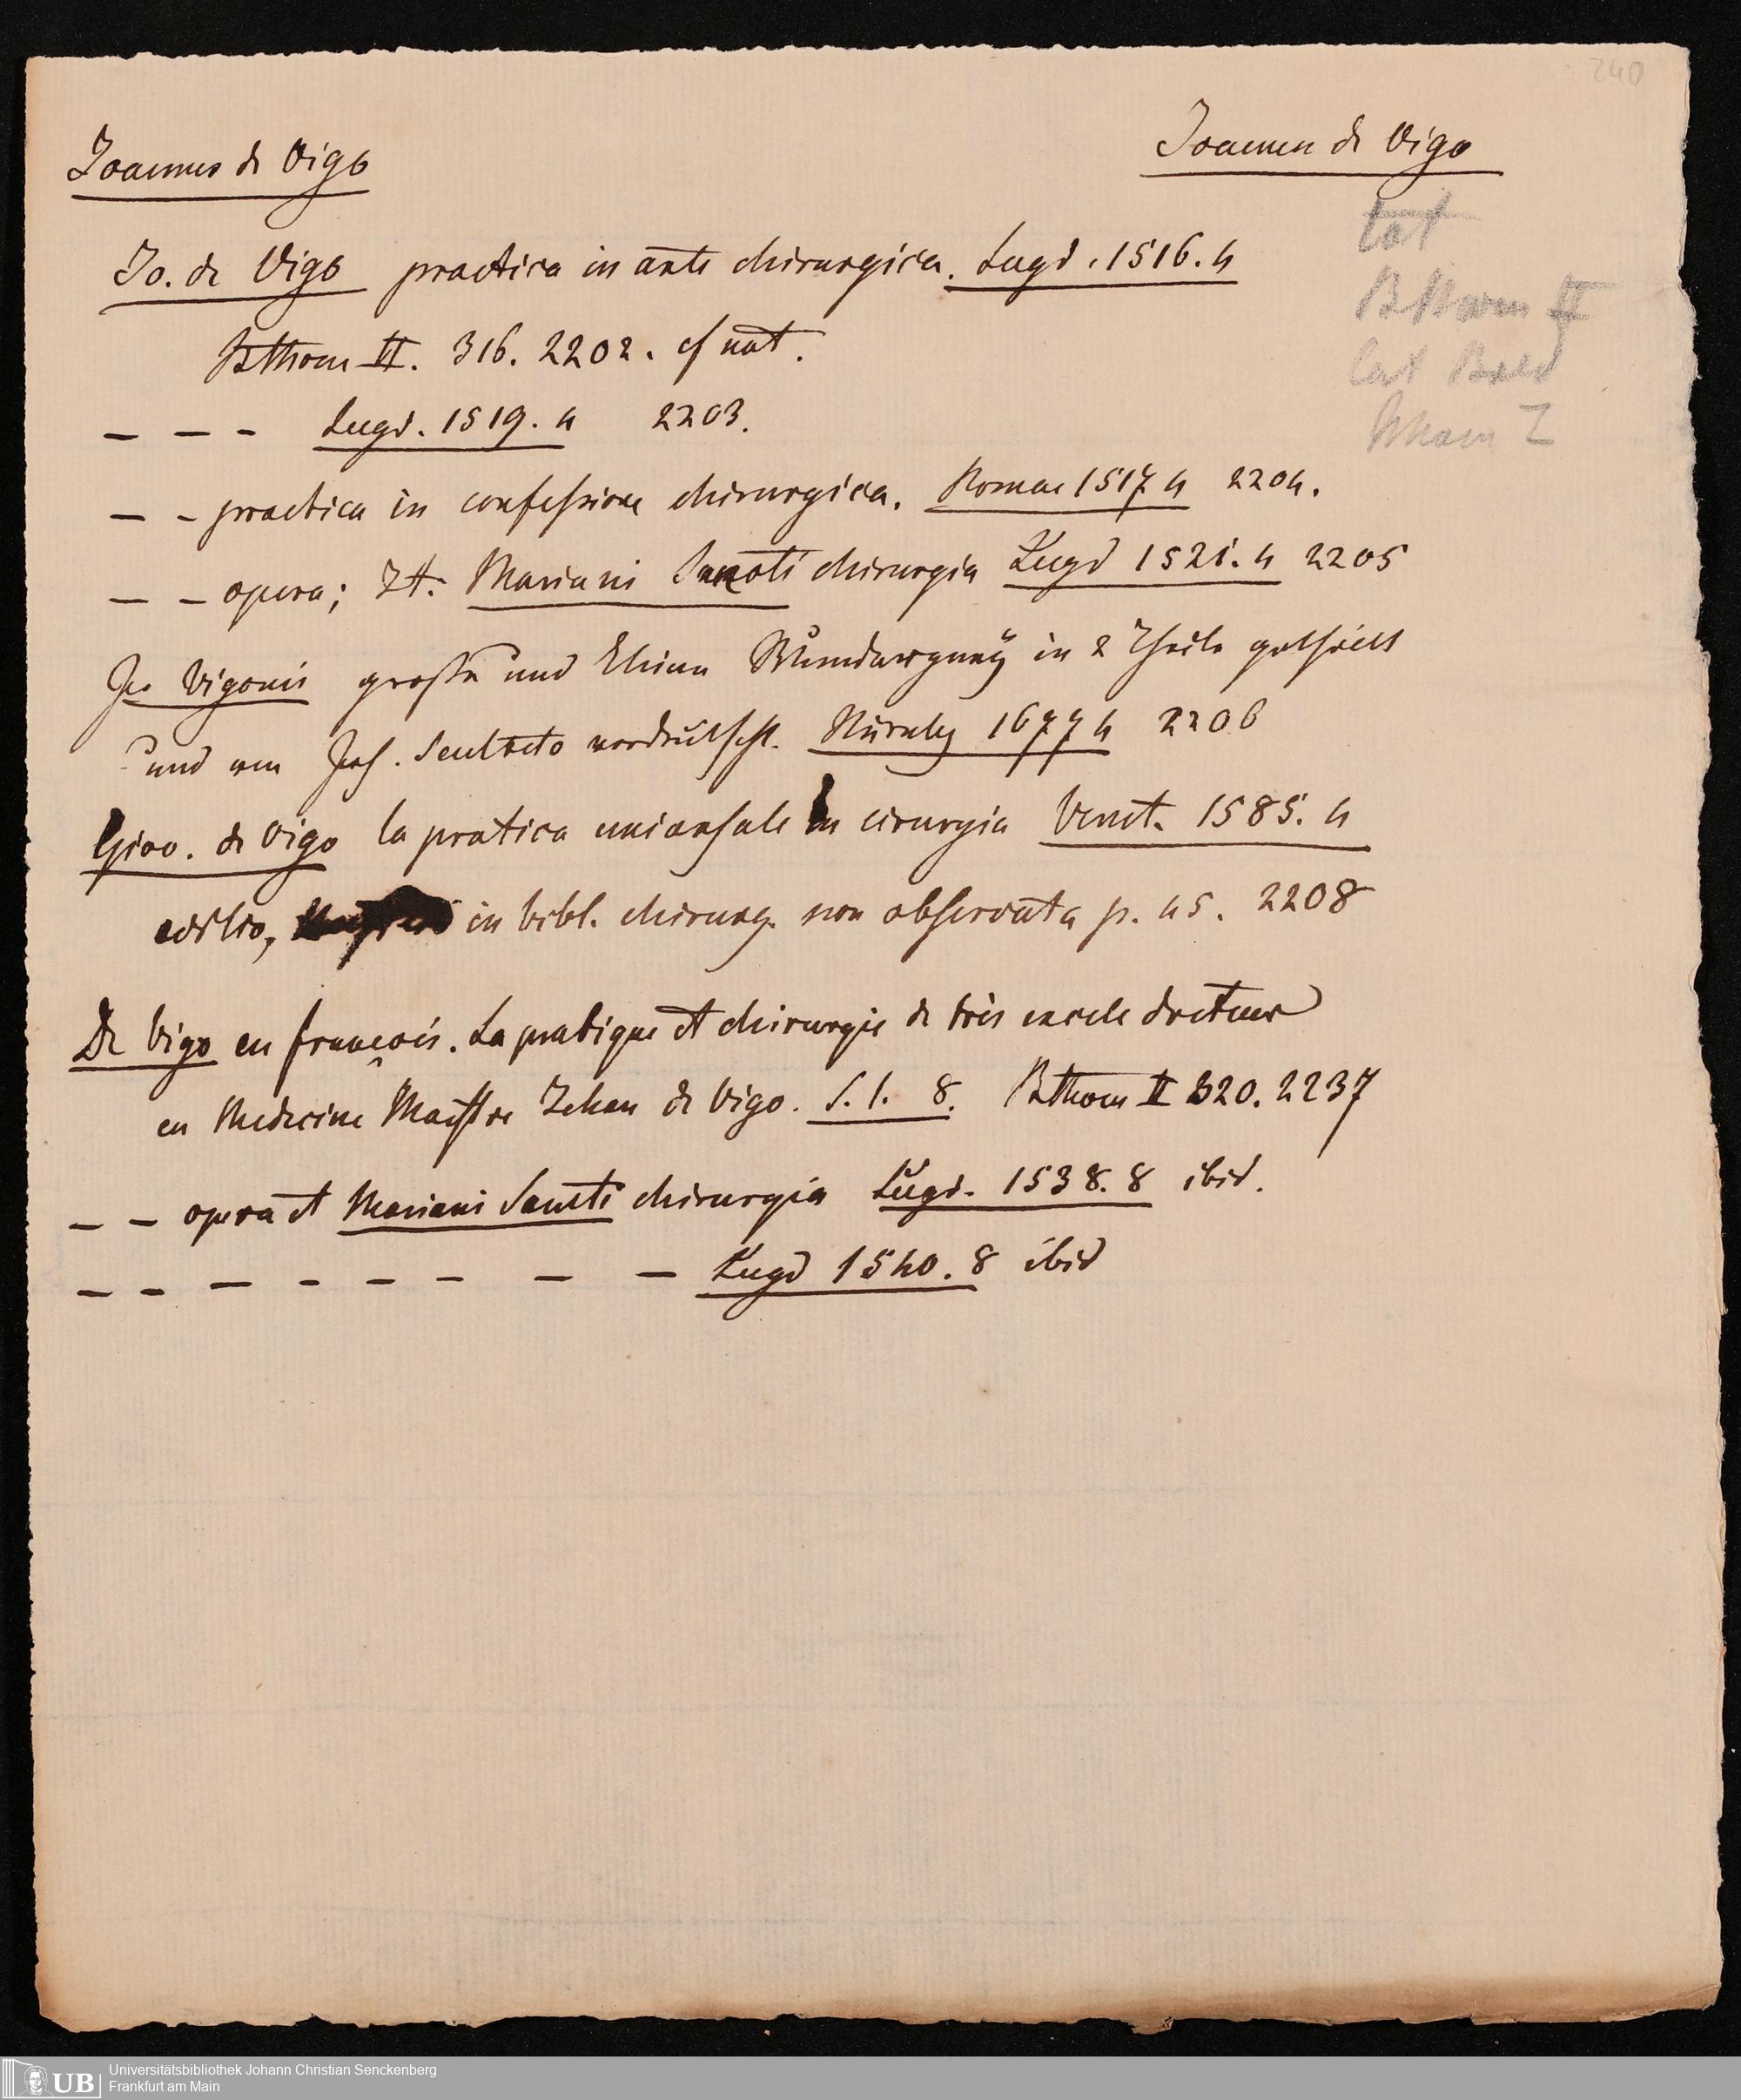 240
Joannes de Vigo
Joannes de Vigo
tat
Bthom II
Cat Bald
Jo. de Vigo practica in arte chirurgica. Lugd. 1516. 4
Bthom II. 316. 2202. cf not.
– – – Lugd. 1519. 4 2203.
– – practica in confessione chirurgica. Romae 1517 4 2204.
– – opera; It. Mariani Sancti chirurgia Lugd 1521. 4 2205
Jo Vigonis große und kleine Wundarzney in 2 Theile getheilt
und von Joh. Sculteto verdeutscht. Nürnbg 1677 4 2206
Giov. de Vigo la pratica universale in cirurgia Venet. 1585. 4
editio, in bibl. chirurg. non observata p. 45. 2208
De Vigo en françois. La pratique et chirurgie de très excele docteur
en Medecine Maistre Jehan de Vigo. S. l. 8. Bthom II 320. 2237
– – opera et Mariani Sancti chirurgia Lugd. 1538. 8 ibid.
– – – – – – – – Lugd 1540. 8 ibid
UB Universitätsbibliothek Johann Christian Senckenberg
Frankfurt am Main